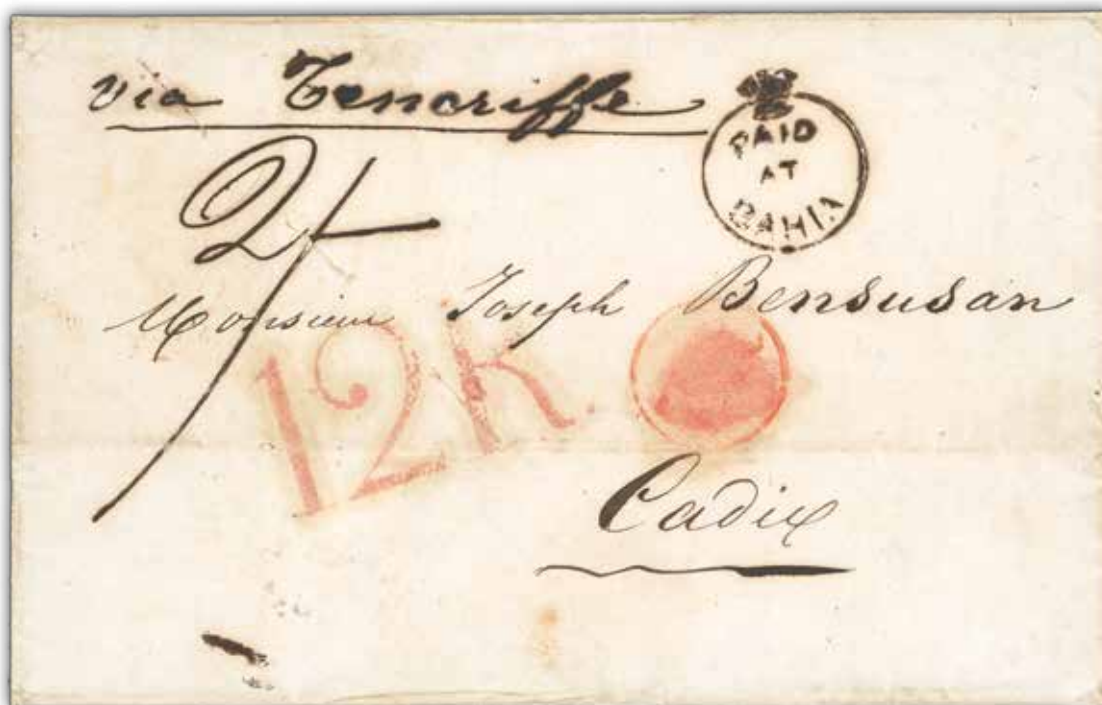 via Teneriffe
PAID
AT
BAHIA
2/
Monsieur Joseph Bensusan
12R.
Cadix